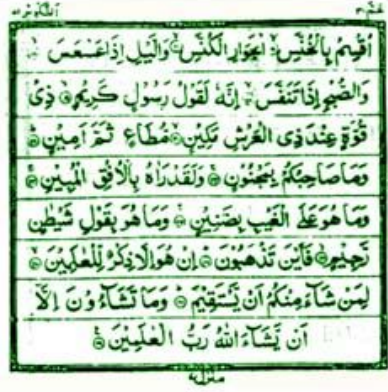 عم ۳۰ التكوير ۸۱
أُقْسِمُ بِالْخُنَّسِ ۙ الْجَوَارِ الْكُنَّسِ ۙ وَالَّيْلِ إِذَا عَسْعَسَ ۙ
وَالصُّبْحِ إِذَا تَنَفَّسَ ۙ إِنَّهُ لَقَوْلُ رَسُولٍ كَرِيمٍ ۙ ذِي
قُوَّةٍ عِنْدَ ذِي الْعَرْشِ مَكِينٍ ۙ مُطَاعٍ ثَمَّ أَمِينٍ ۙ
وَمَا صَاحِبُكُمْ بِمَجْنُونٍ ۚ وَلَقَدْ رَاٰهُ بِالْأُفُقِ الْمُبِينِ ۚ
وَمَا هُوَ عَلَى الْغَيْبِ بِضَنِينٍ ۚ وَمَا هُوَ بِقَوْلِ شَيْطٰنٍ
رَّجِيمٍ ۙ فَأَيْنَ تَذْهَبُونَ ۙ إِنْ هُوَ إِلَّا ذِكْرٌ لِّلْعٰلَمِينَ ۙ
لِمَنْ شَاءَ مِنْكُمْ أَنْ يَّسْتَقِيمَ ۙ وَمَا تَشَاءُونَ إِلَّا
أَنْ يَّشَاءَ اللّٰهُ رَبُّ الْعٰلَمِينَ ۙ
منزل ۷